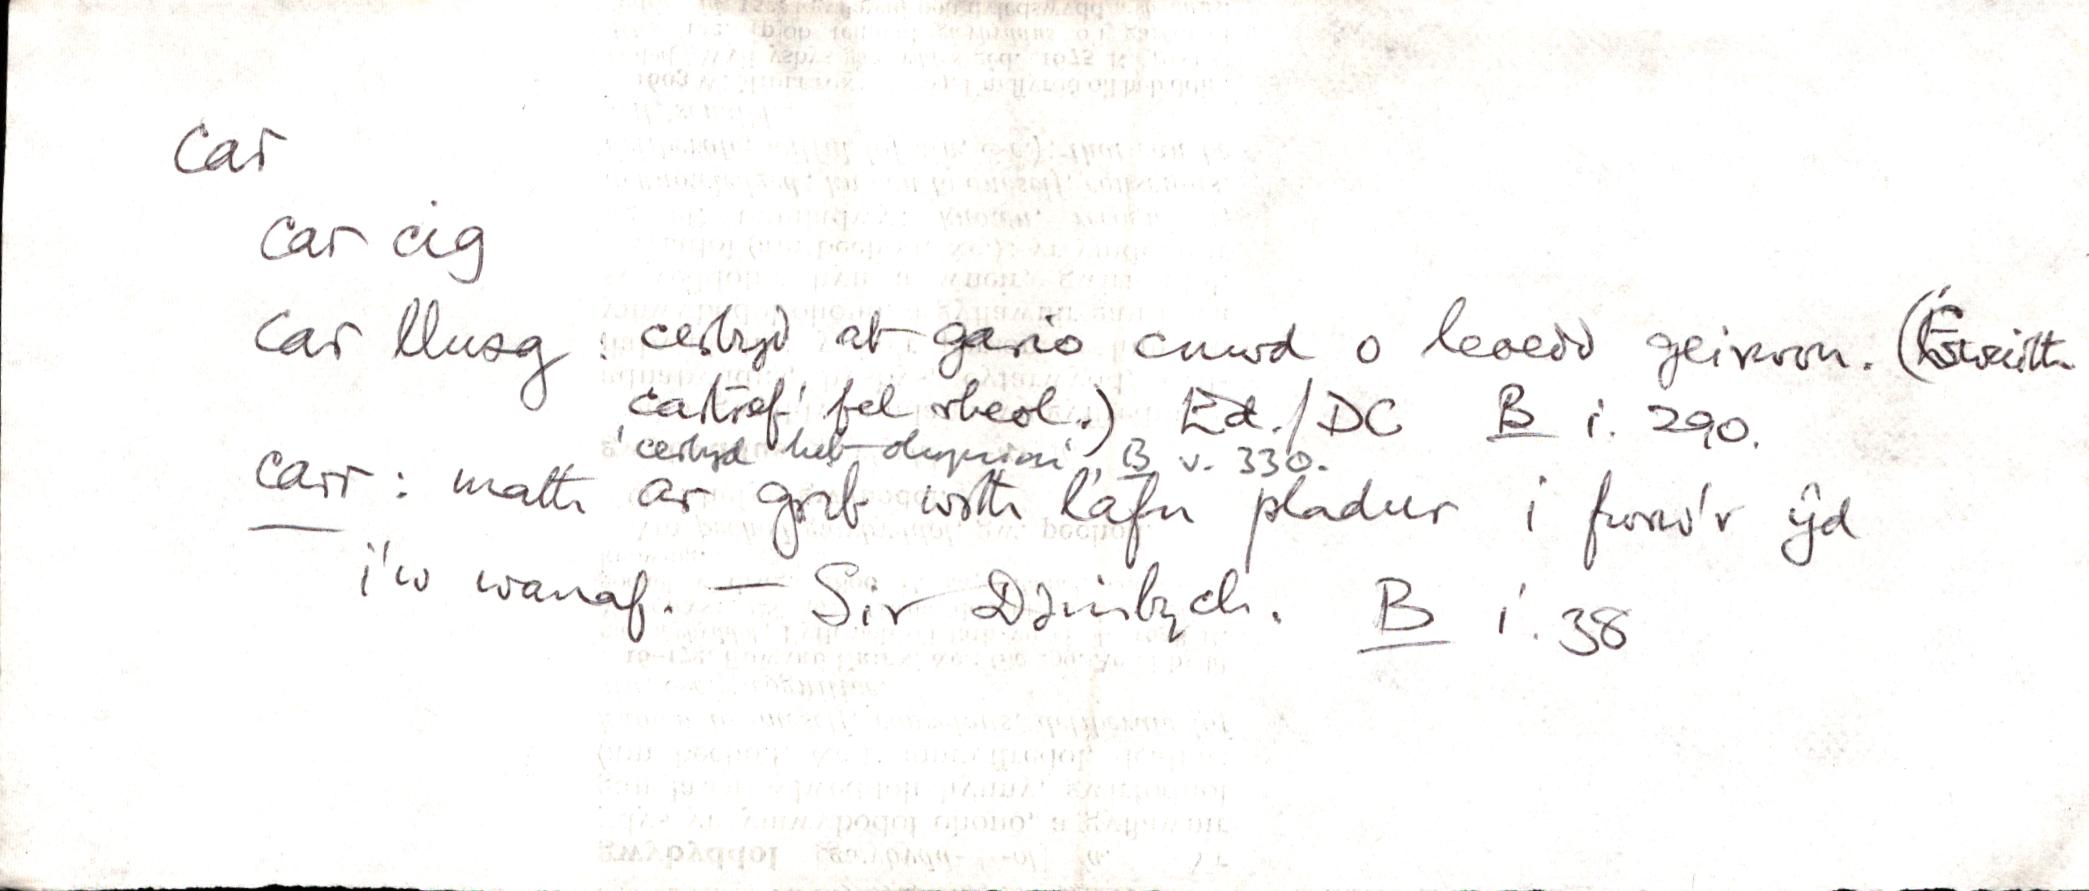 car
car cig
car llusg : cerbyd at gario cnwd o leoedd geirwon. (Gwaith
cartref fel rheol.) Ed./DC B i. 290.
'cerbyd heb olwynion' B v. 330.
carr : math ar grib wrth lafn pladur i fwrw'r ŷd
i'w wanaf. — Sir Ddinbych. B i. 38